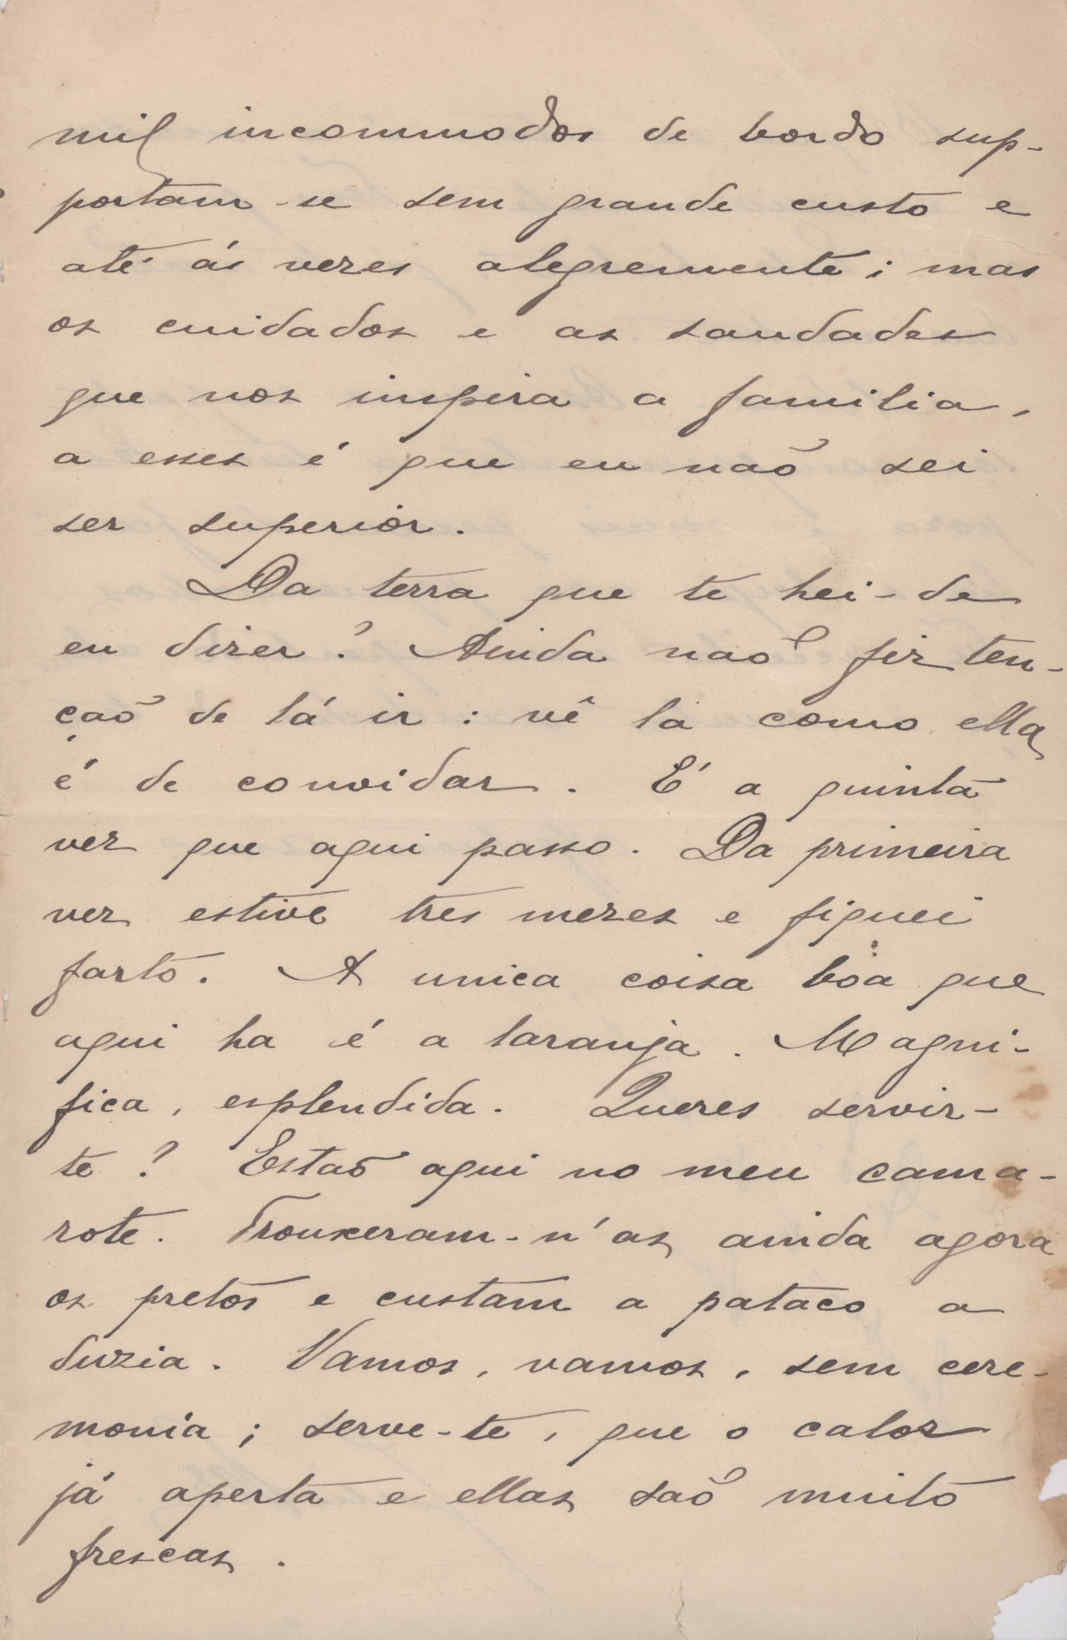 mil incommodos de bordo sup-
portam-se sem grande custo e
até ás vezes alegremente; mas
os cuidados e as saudades
que nos inspira a familia,
a esses é que eu não sei
ser superior.
Da terra que te hei-de
eu dizer? Ainda não fiz ten-
ção de lá ir: vê la como ella
é de convidar. É a quinta
vez que aqui passo. Da primeira
vez estive tres mezes e fiquei
farto. A unica coisa bôa que
aqui ha é a laranja. Magni-
fica, esplendida. Queres servir-
te? Estão aqui no meu cama-
rote. Trouxeram-n'as ainda agora
os pretos e custam a pataco a
duzia. Vamos, vamos, sem cere-
monia; serve-te, que o calor
já aperta e ellas são muito
frescas.